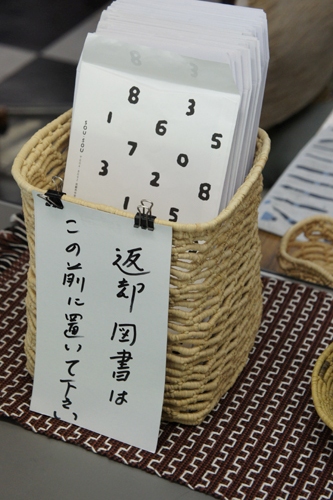 8 3
1 6 5
7 0
3 2 8
1 5
SOU・SOU
返却 図書は
この前に置いて下さい